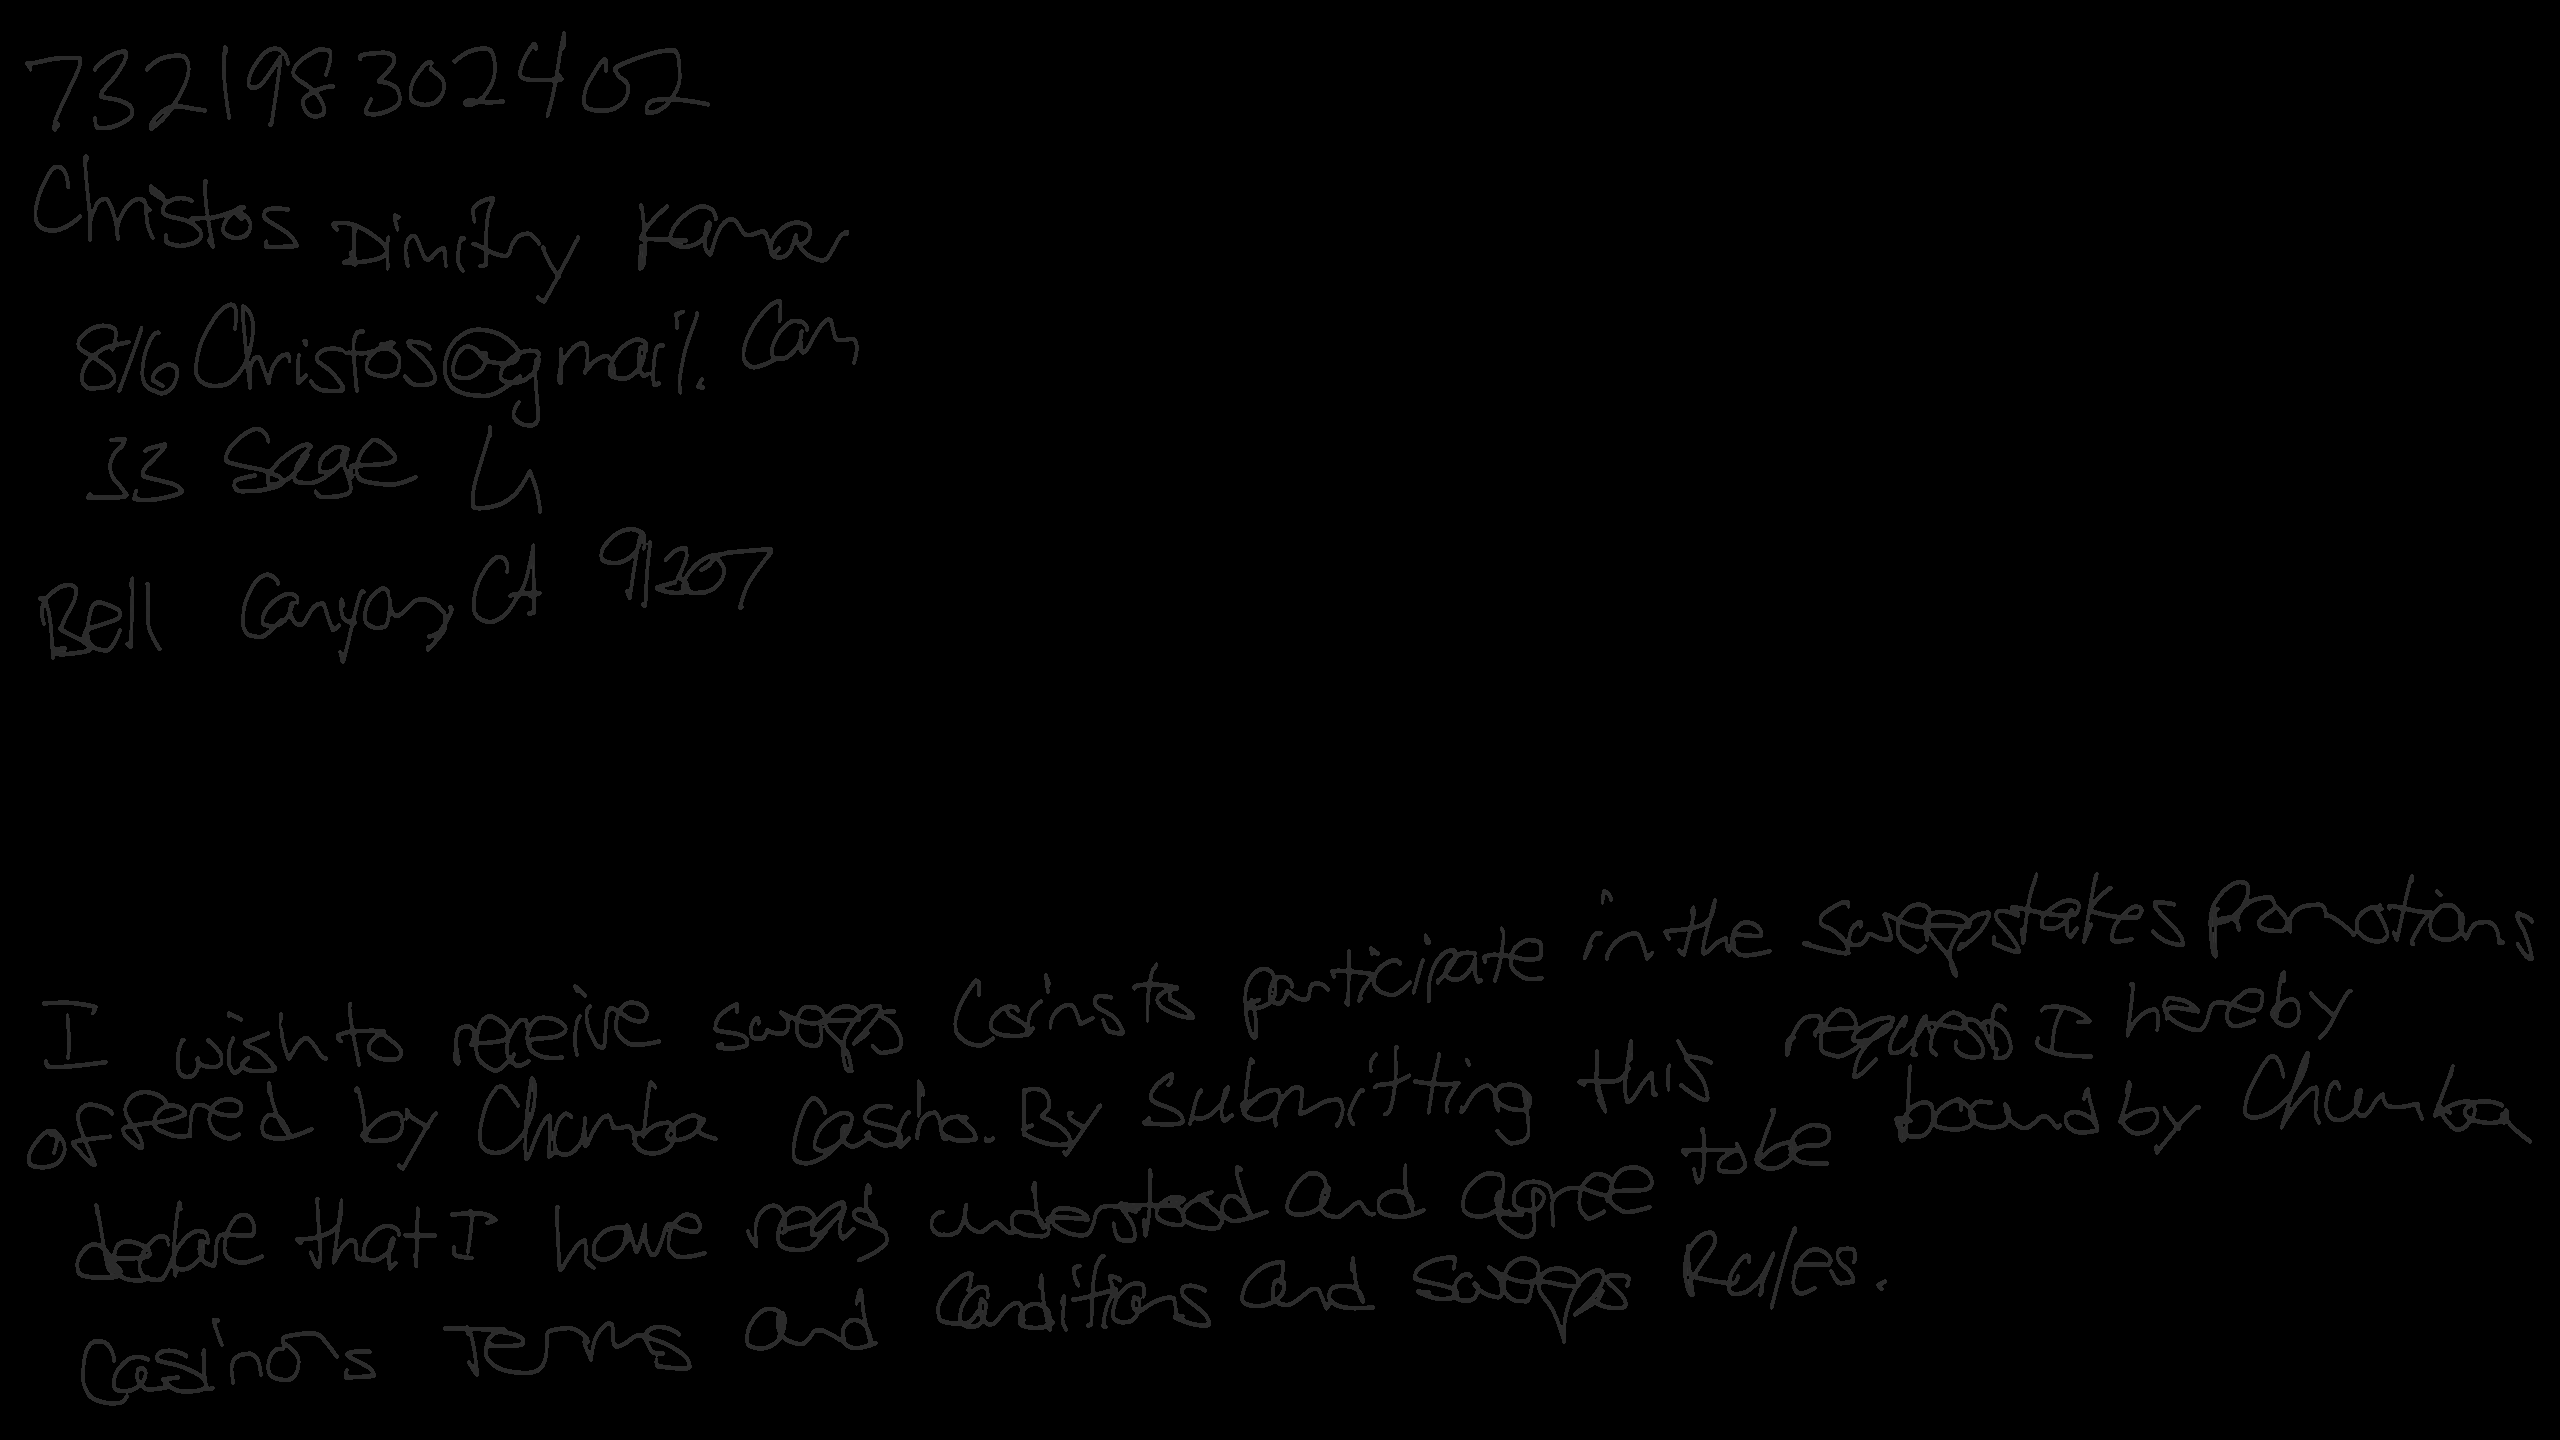 732198302402
Christos Dimitry Kamar
816Christos@gmail.com
33 Sage Ln
Bell Canyon, CA 91307
I wish to receive sweeps Coins to participate in the sweepstakes promotions
offered by Chumba Casino. By submitting this request I hereby
declare that I have read, understood and agree to be bound by Chumba
Casino's Terms and Conditions and Sweeps Rules.